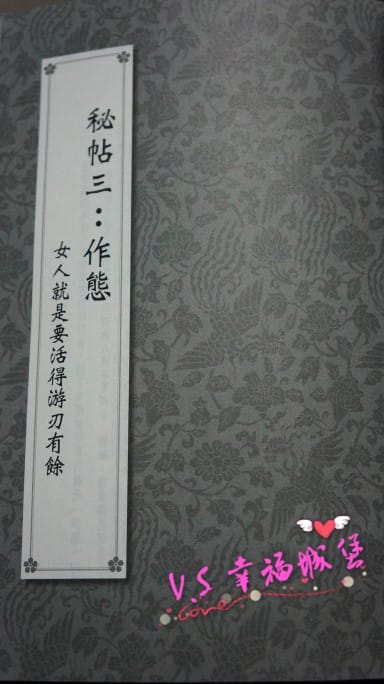 秘帖三：作態
女人就是要活得游刃有餘
V.S 幸福城堡
Love